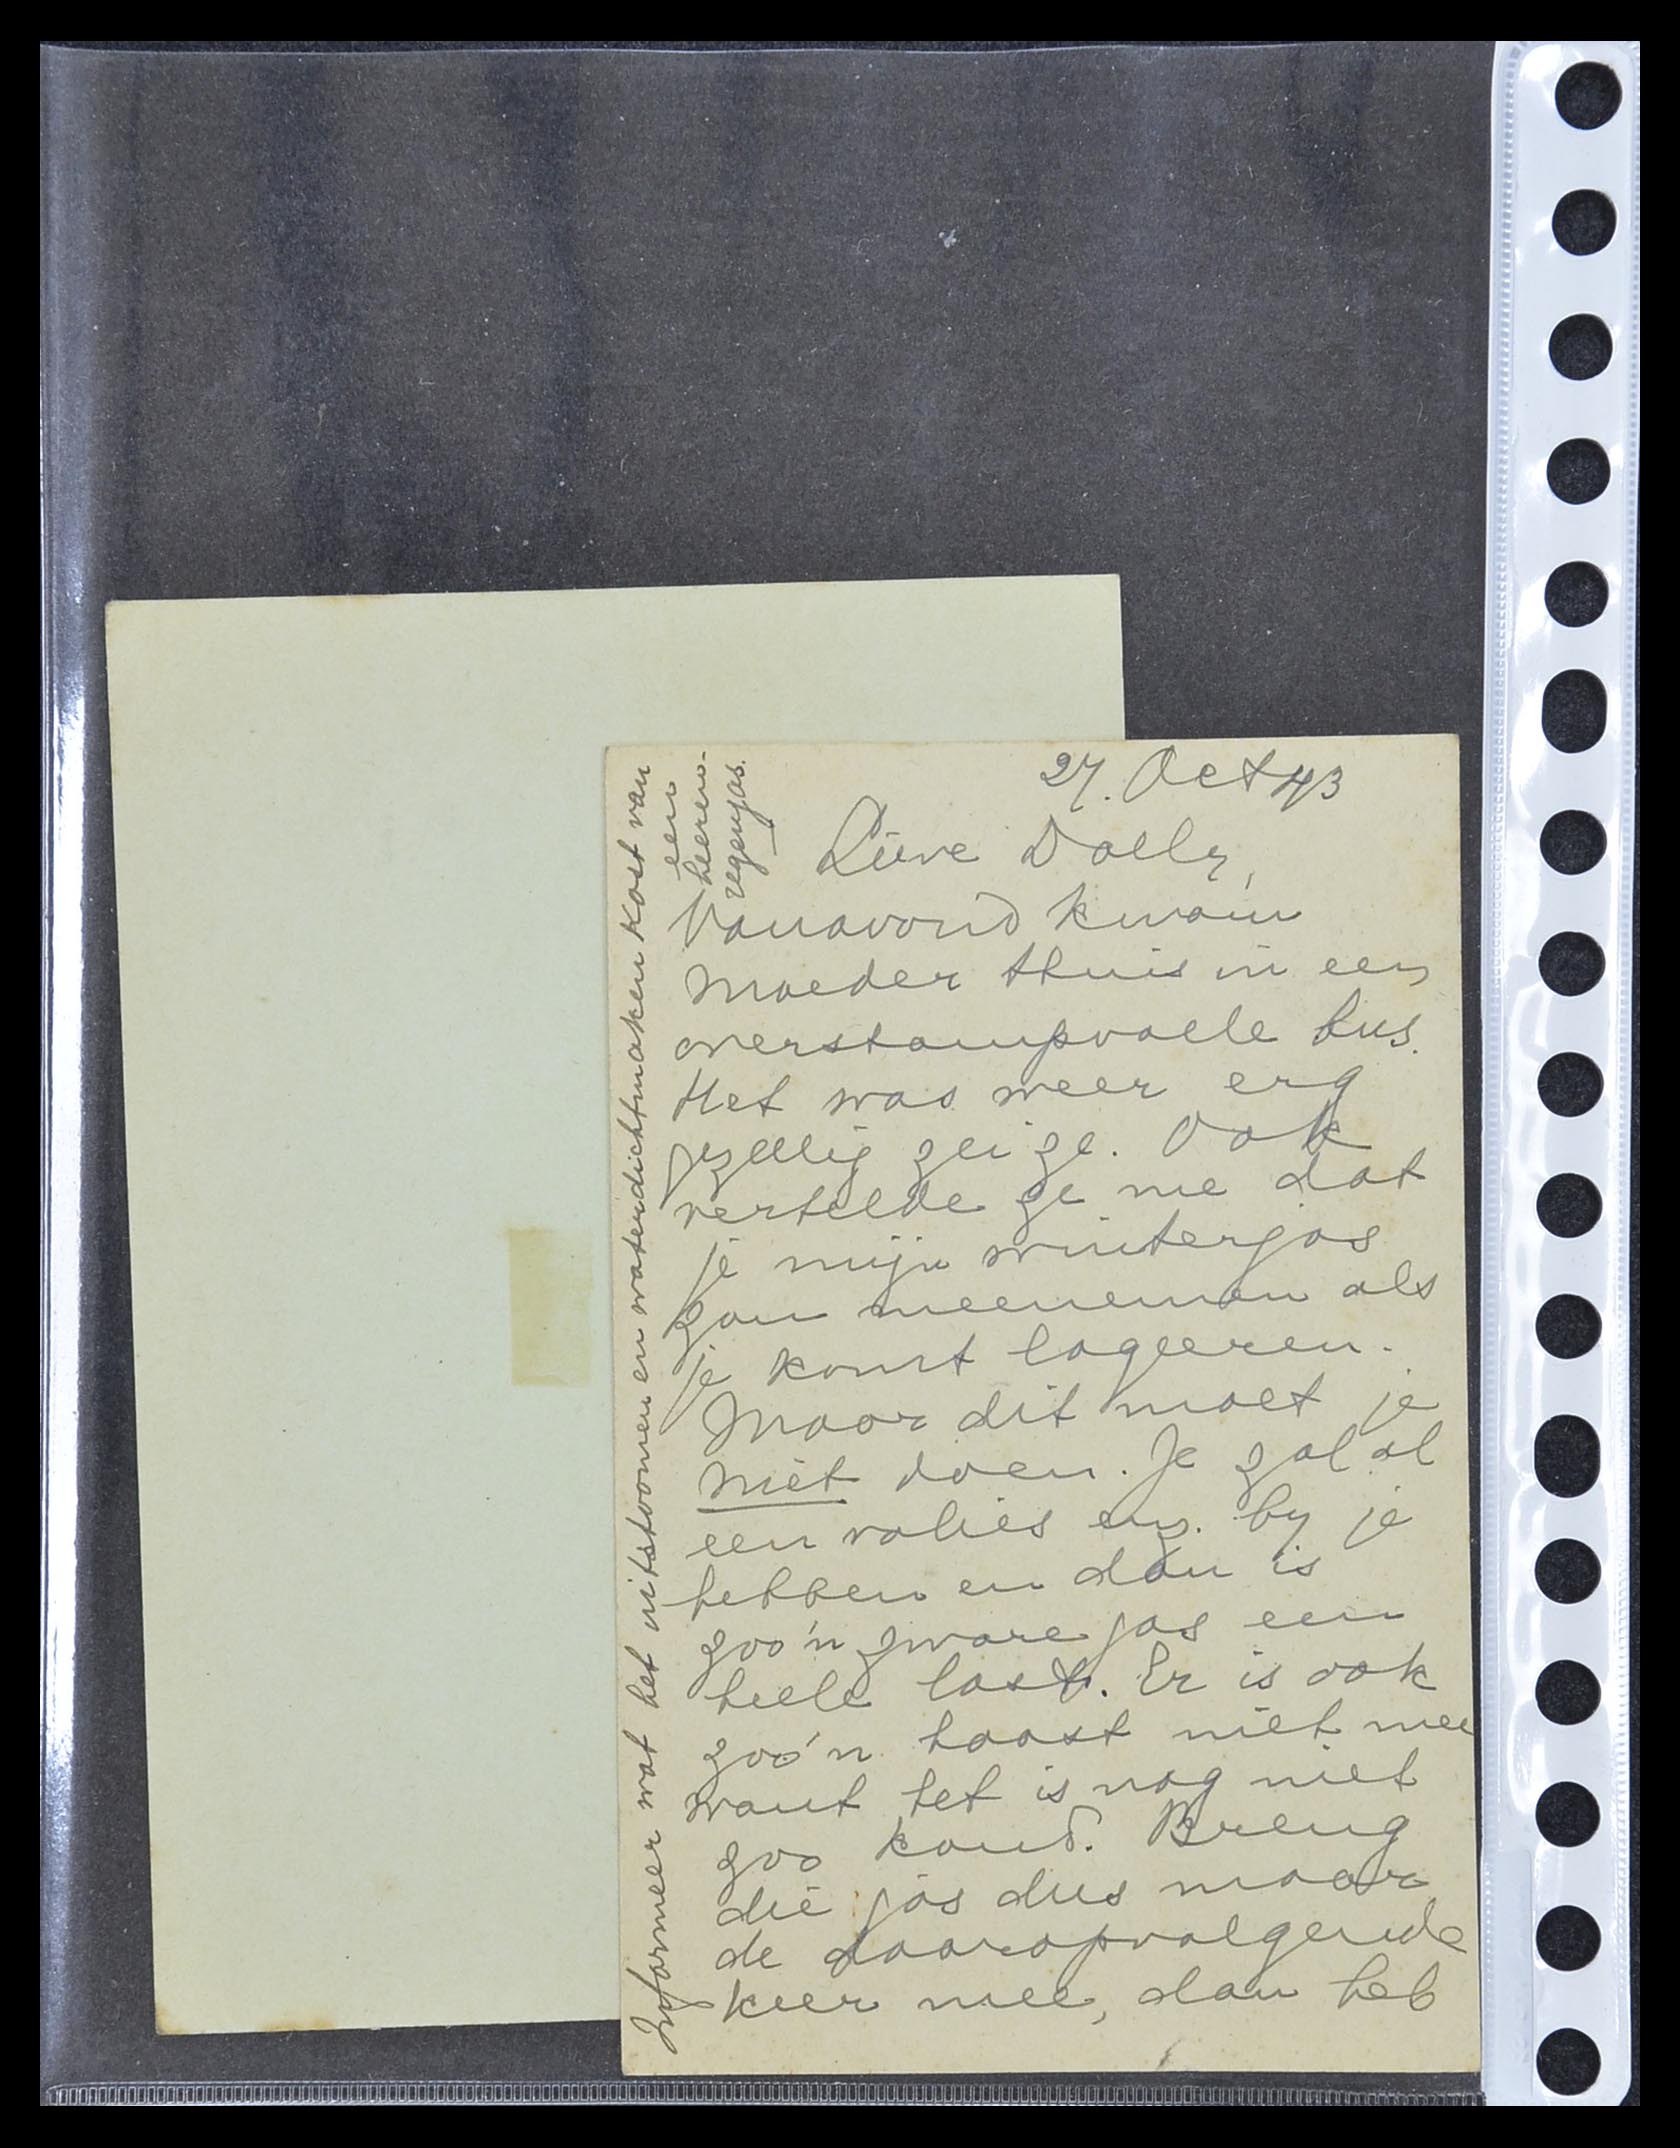 27. Oct 43
Lieve Dolly,
Vanavond kwam
moeder thuis in een
overstampvolle bus.
Het was weer erg
gezellig zei ze. Ook
vertelde ze me dat
je mijn winterjas
zou meenemen als
je komt logeeren.
Maar dit moet je
niet doen. Je zal al
een valies enz. by je
hebben en dan is
zoo'n zware jas een
heele last. Er is ook
zoo'n haast niet mee
want het is nog niet
zoo koud. Breng
die jas dus maar
de daaropvolgende
keer mee, dan heb
Informeer wat het uitstoomen en waterdichtmaken kost van
een
heeren-
regenjas.